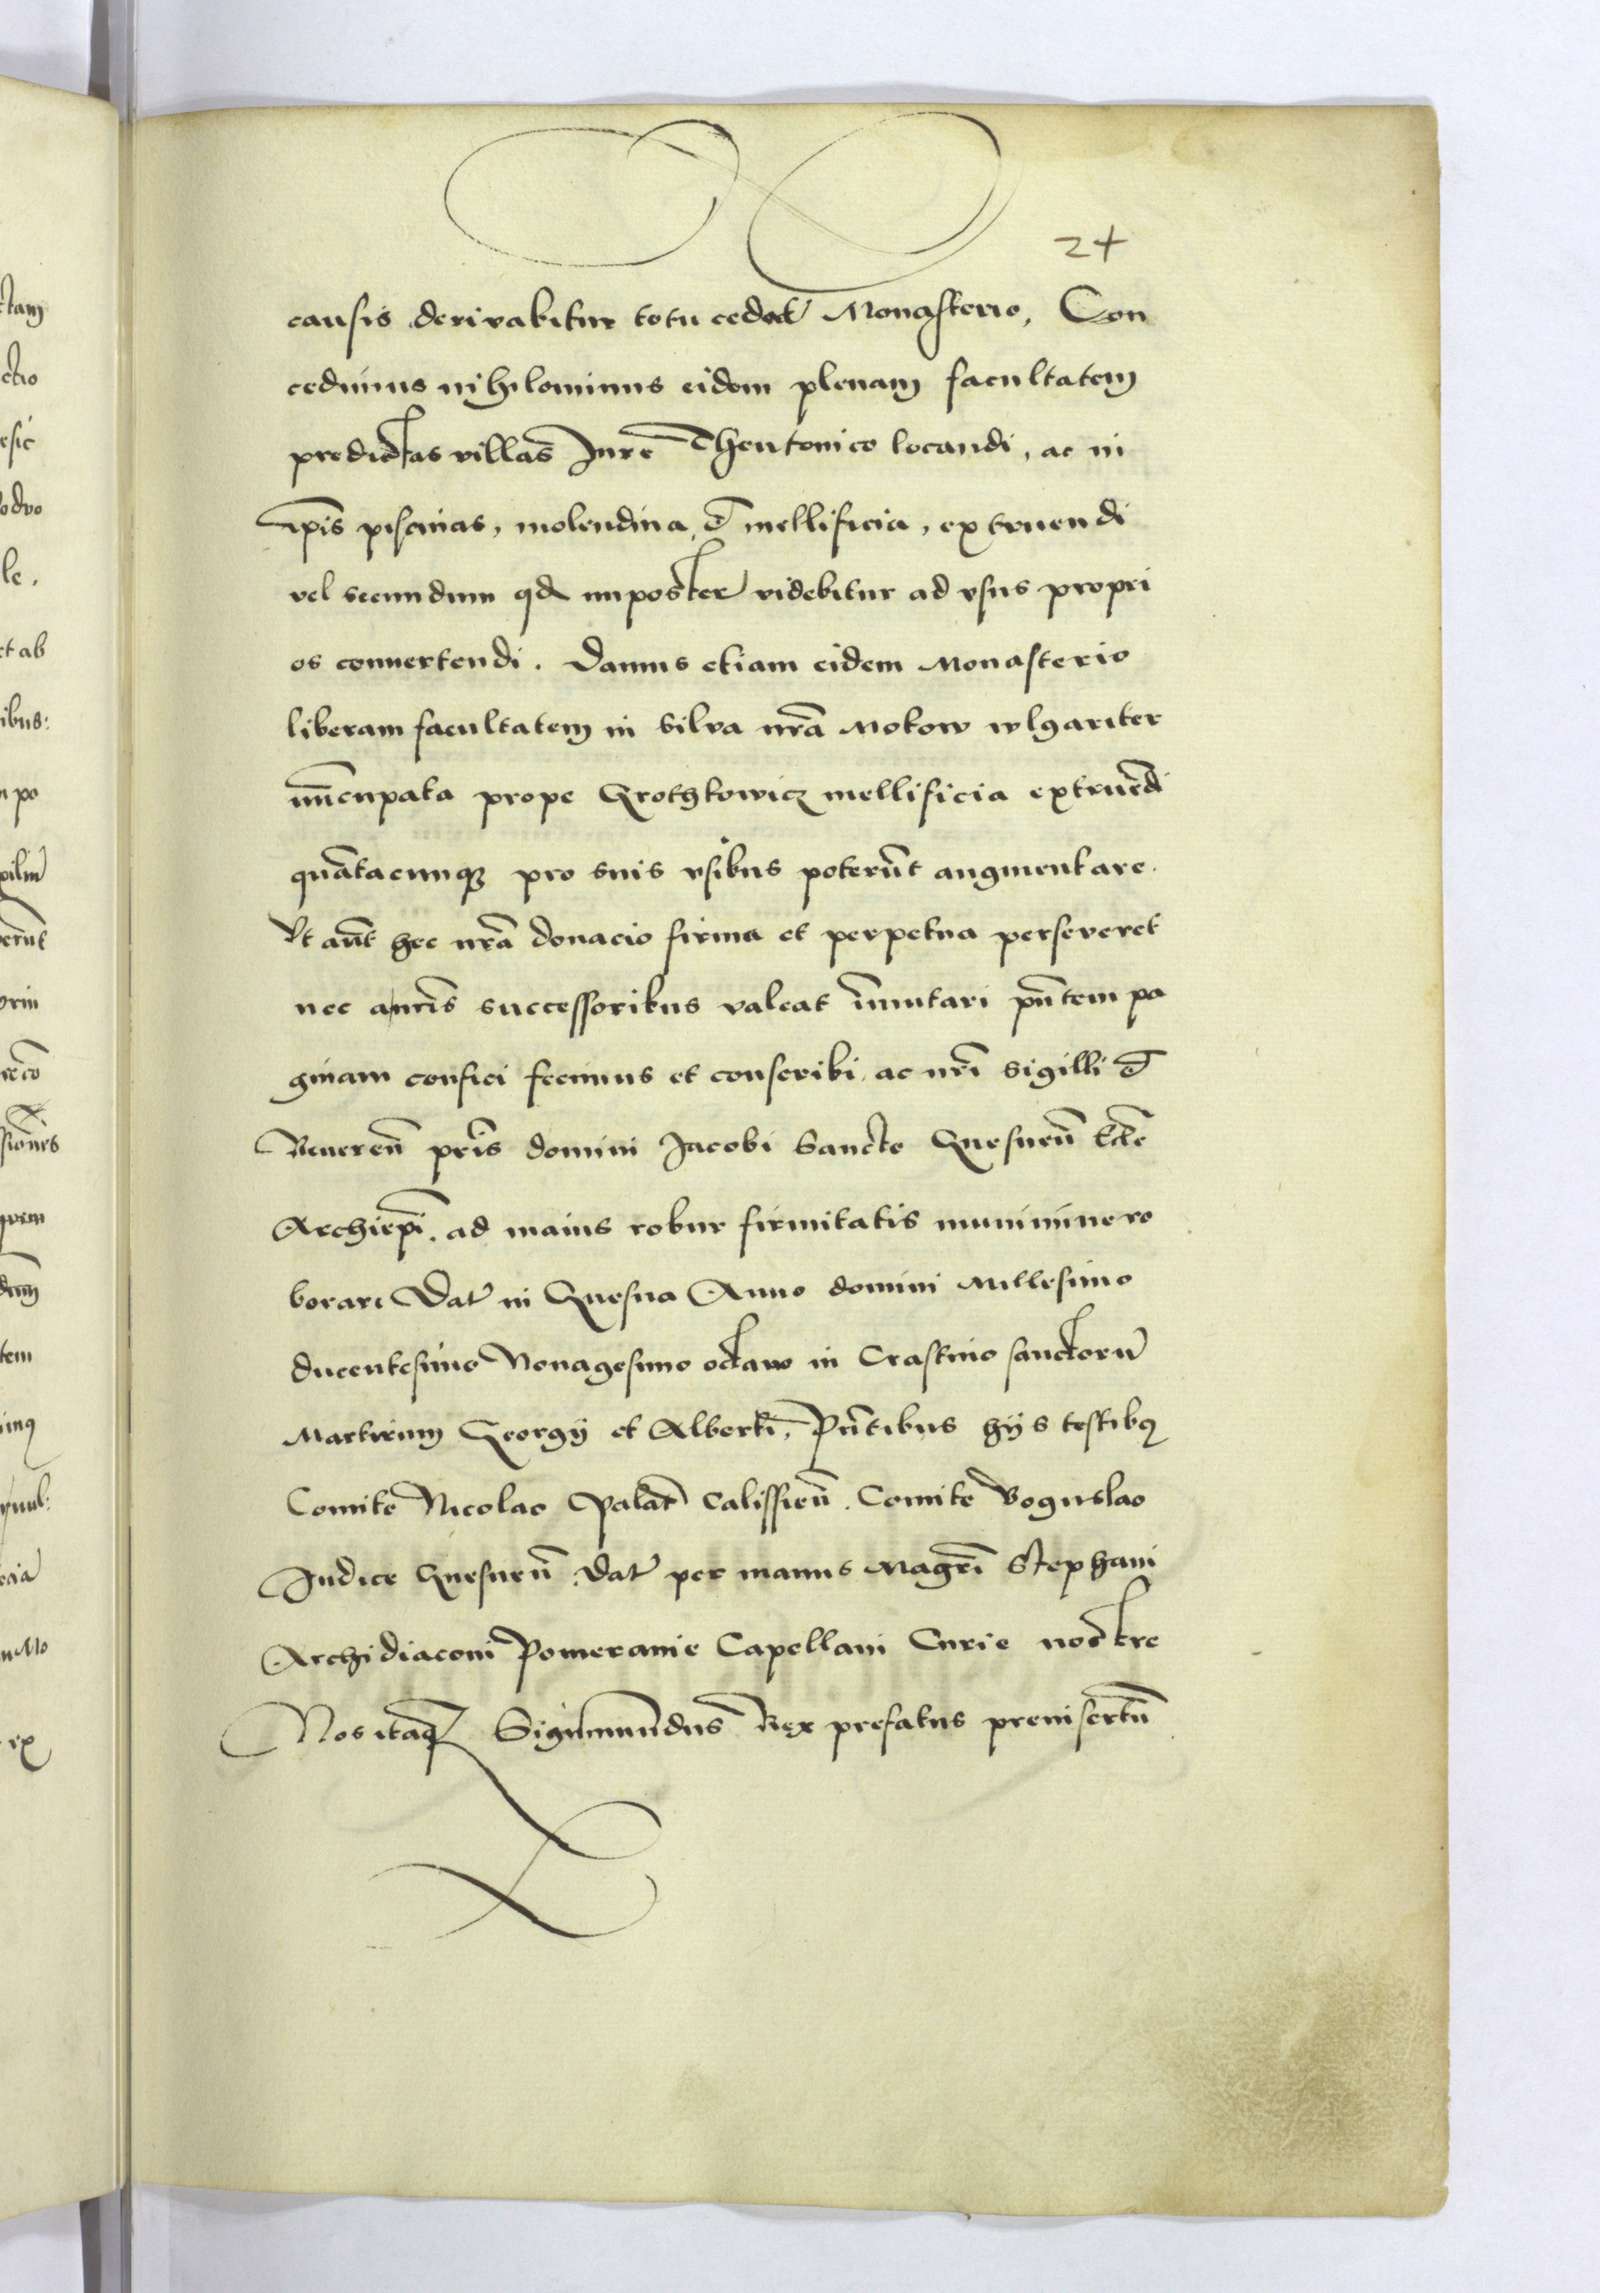 24
causis derivabitur totu cedat Monasterio, Con
cedimus nihilominus eidem plenam facultatem
predictas villas Jure Theutonico locandi, ac in
ip̄is piscinas, molendina, et mellificia, extruendi
vel secundum qd imposter videbitur ad vsus propri
os conuertendi. Damus etiam eidem Monasterio
liberam facultatem in Silva nr̄a Mokow wlgariter
nūcupata prope Grothkowicz mellificia extruēdi
quātacunq̧ pro suis vsibus poterūt augmentare.
Vt aūt hec nr̄a donacio firma et perpetua perseveret
nec a nr̄is successoribus valeat īmutari pn̄tem pa
ginam confici fecimus et conscribi, ac nr̄i sigilli et
Reueren̄ pr̄is domini Jacobi Sancte Gnesnen̄ Eccl̄e
Archiep̄i. ad maius robur firmitatis munimine ro
borari Dat̄ in Gnesna Anno domini Millesimo
ducentesimo Nonagesimo octauo in Crastino sanctorū
Martirum Georgÿ et Alberti, Pn̄tibus hÿs testibꝰ
Comite Nicolao Palat̄ Calissien̄. Comite Boguslao
Judice Gnesnen̄. Dat̄ per manus Magr̄i Stephani
Archidiaconi Pomeranie Capellani Curie nostre
Nos itaq̧ Sigismūndus Rex prefatus preinsertū
ctam
ctio
esic
odvo
le.
et ab
ibus:
n po
erūt
orin
quem
dum
tem